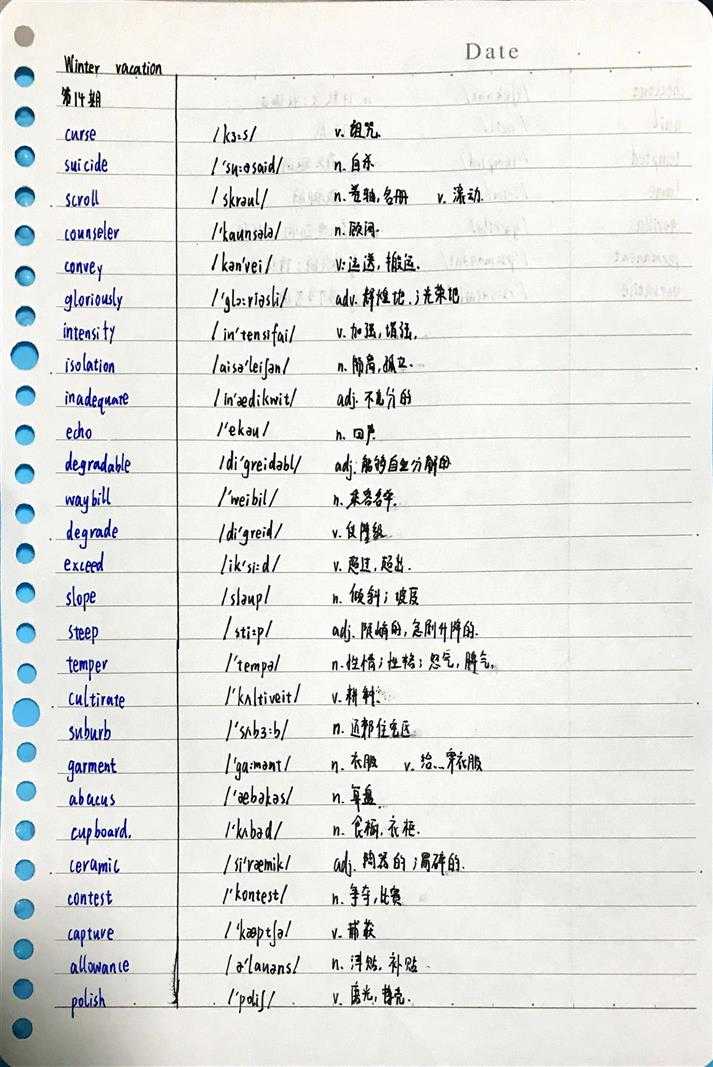 Date
Winter vacation
第14期
curse /kɜ:s/ v. 诅咒.
suicide /'su:əsaid/ n. 自杀
scroll /skrəul/ n. 卷轴, 名册 v. 滚动.
counseler /'kaunsələ/ n. 顾问.
convey /kən'vei/ v: 运送, 搬运.
gloriously /'glɔ:riəsli/ adv. 辉煌地; 光荣地
intensify /in'tensifai/ v. 加强, 增强.
isolation /aisə'leiʃən/ n. 隔离, 孤立.
inadequate /in'ædikwit/ adj. 不充分的
echo /'ekəu/ n. 回声
degradable /di'greidəbl/ adj. 能够自然分解的
waybill /'weibil/ n. 乘客名单.
degrade /di'greid/ v. 使降级
exceed /ik'si:d/ v. 超过, 超出.
slope /sləup/ n. 倾斜; 坡度
steep /sti:p/ adj. 陡峭的, 急剧升降的.
temper /'tempə/ n. 性情; 性格; 怒气, 脾气.
cultirate /'kʌltiveit/ v. 耕料.
suburb /'sʌbɜ:b/ n. 近郊住宅区
garment /'ga:mənt/ n. 衣服 v. 给...穿衣服
abacus /'æbəkəs/ n. 算盘
cupboard. /'kʌbəd/ n. 食橱, 衣柜.
ceramic /si'ræmik/ adj. 陶器的;易碎的.
contest /'kontest/ n. 争夺, 比赛
capture /'kæptʃə/ v. 捕获
allowance /ə'lauəns/ n. 津贴, 补贴.
polish /'poliʃ/ v. 磨光,